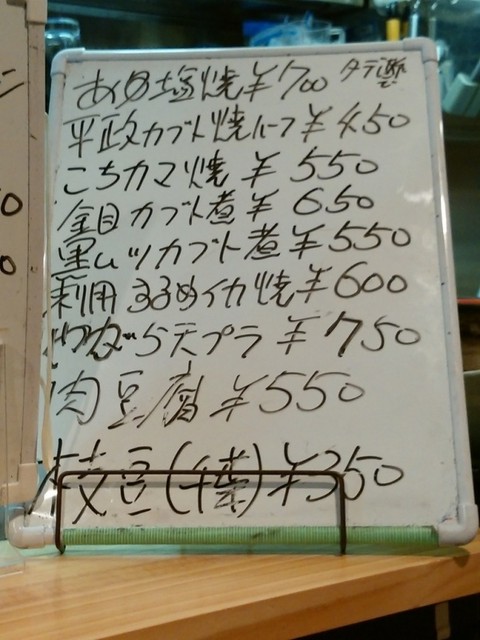 あゆ塩焼¥700
平政カブト焼ハーフ¥450
こちカマ焼 ¥550
金目カブト煮 ¥650
黒ムツカブト煮 ¥550
するめイカ焼¥600
天プラ ¥750
肉豆腐 ¥550
枝豆(千葉)¥350